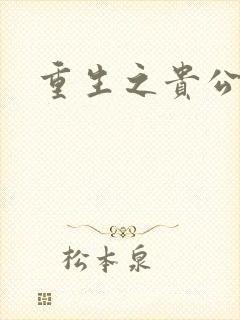 重生之貴公
松本泉